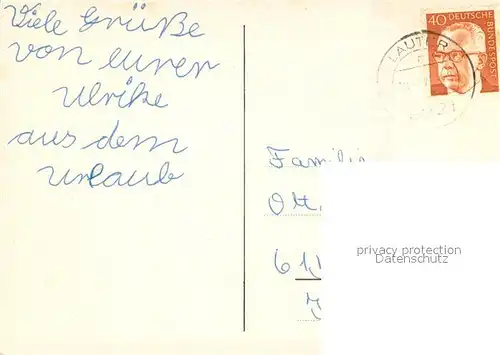 Viele Grüße
von eurer
Ulrike
aus dem
Urlaub
40 DEUTSCHE
BUNDESPOST
LAUTER
21
Familie
Ott
61
privacy protection
Datenschutz